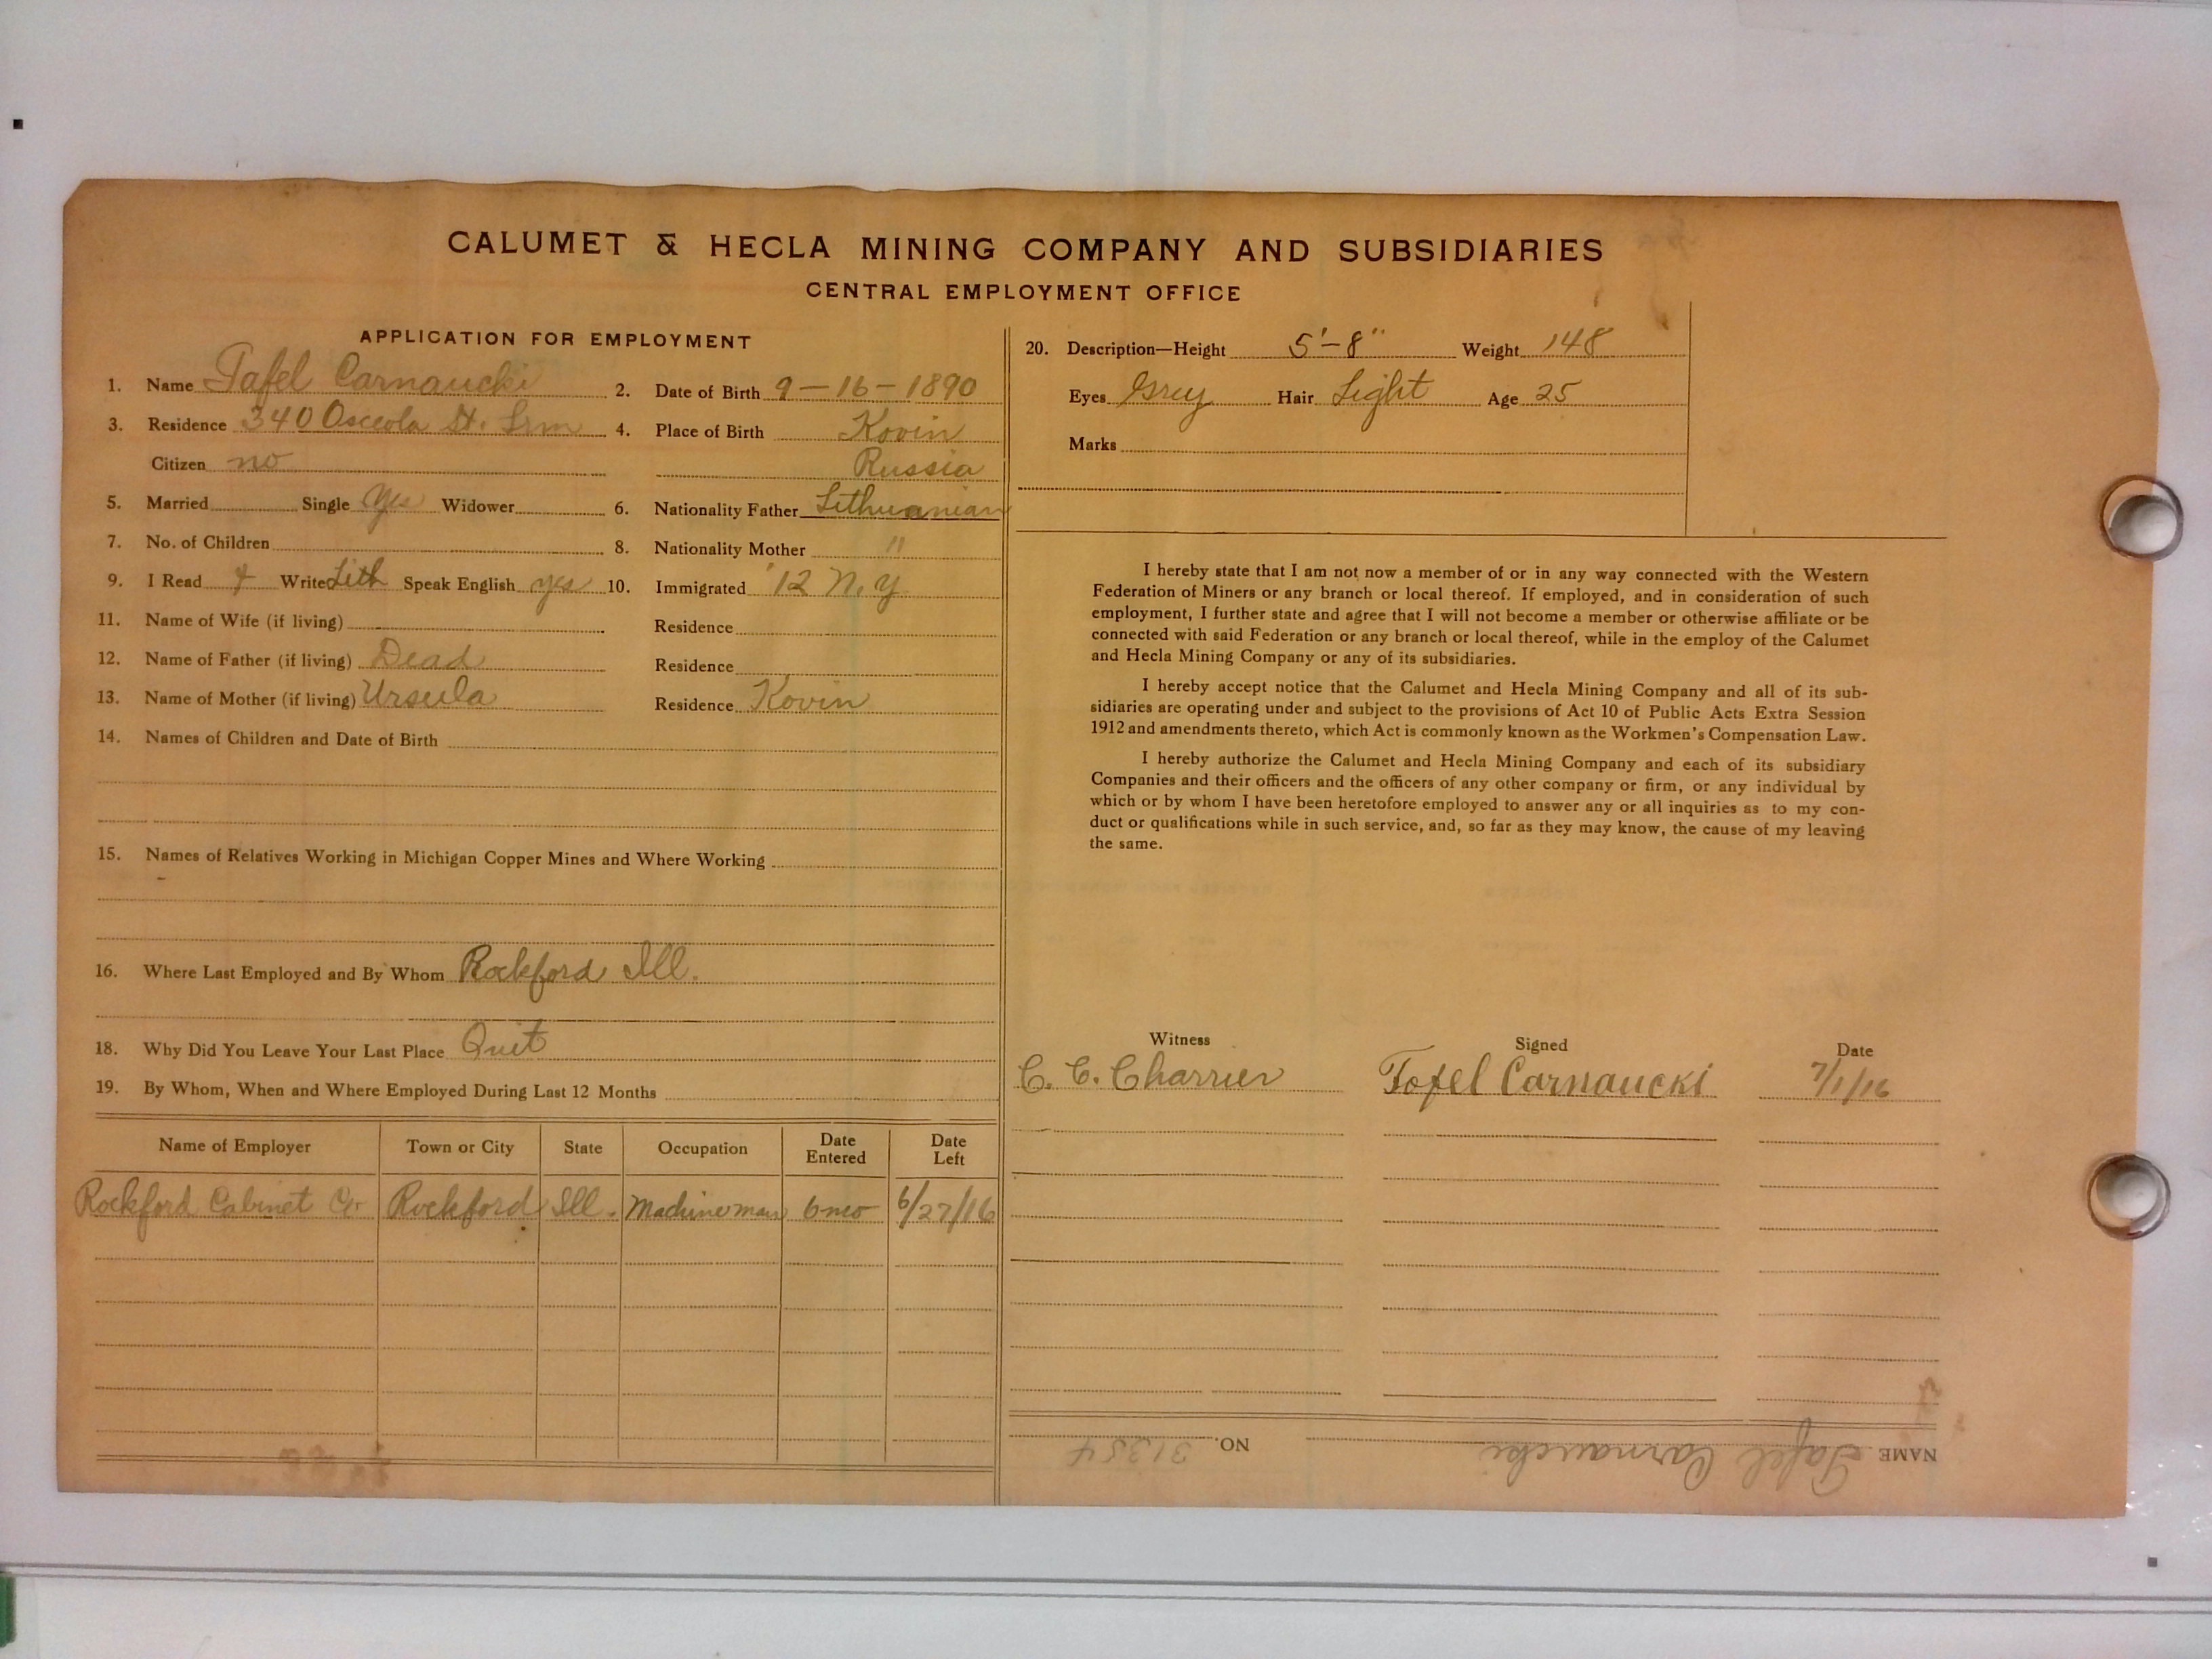 CALUMET & HECLA MINING COMPANY AND SUBSIDIARIES
CENTRAL EMPLOYMENT OFFICE
APPLICATION FOR EMPLOYMENT
1. Name Tafel Carnaucki 2. Date of Birth 9-16-1890
3. Residence 340 Osceola St. Lrm 4. Place of Birth Kovin
Citizen no Russia
5. Married Single Yes Widower 6. Nationality Father Lithuanian
7. No. of Children 8. Nationality Mother "
9. I Read & Write Lith Speak English yes 10. Immigrated '12 N.Y
11. Name of Wife (if living) Residence
12. Name of Father (if living) Dead Residence
13. Name of Mother (if living) Ursula Residence Kovin
14. Names of Children and Date of Birth
15. Names of Relatives Working in Michigan Copper Mines and Where Working
16. Where Last Employed and By Whom Rockford Ill.
18. Why Did You Leave Your Last Place Quit
19. By Whom, When and Where Employed During Last 12 Months
Name of Employer Town or City State Occupation Date Entered Date Left
Rockford Cabinet Co Rockford Ill. Machineman 6 mo 6/27/16
20. Description—Height 5'-8" Weight 148
Eyes Grey Hair Light Age 25
Marks
I hereby state that I am not now a member of or in any way connected with the Western
Federation of Miners or any branch or local thereof. If employed, and in consideration of such
employment, I further state and agree that I will not become a member or otherwise affiliate or be
connected with said Federation or any branch or local thereof, while in the employ of the Calumet
and Hecla Mining Company or any of its subsidiaries.
I hereby accept notice that the Calumet and Hecla Mining Company and all of its sub-
sidiaries are operating under and subject to the provisions of Act 10 of Public Acts Extra Session
1912 and amendments thereto, which Act is commonly known as the Workmen's Compensation Law.
I hereby authorize the Calumet and Hecla Mining Company and each of its subsidiary
Companies and their officers and the officers of any other company or firm, or any individual by
which or by whom I have been heretofore employed to answer any or all inquiries as to my con-
duct or qualifications while in such service, and, so far as they may know, the cause of my leaving
the same.
Witness Signed Date
C. C. Charrier Tofel Carnaucki 7/1/16
NAME Tafel Carnaucki NO. 31354